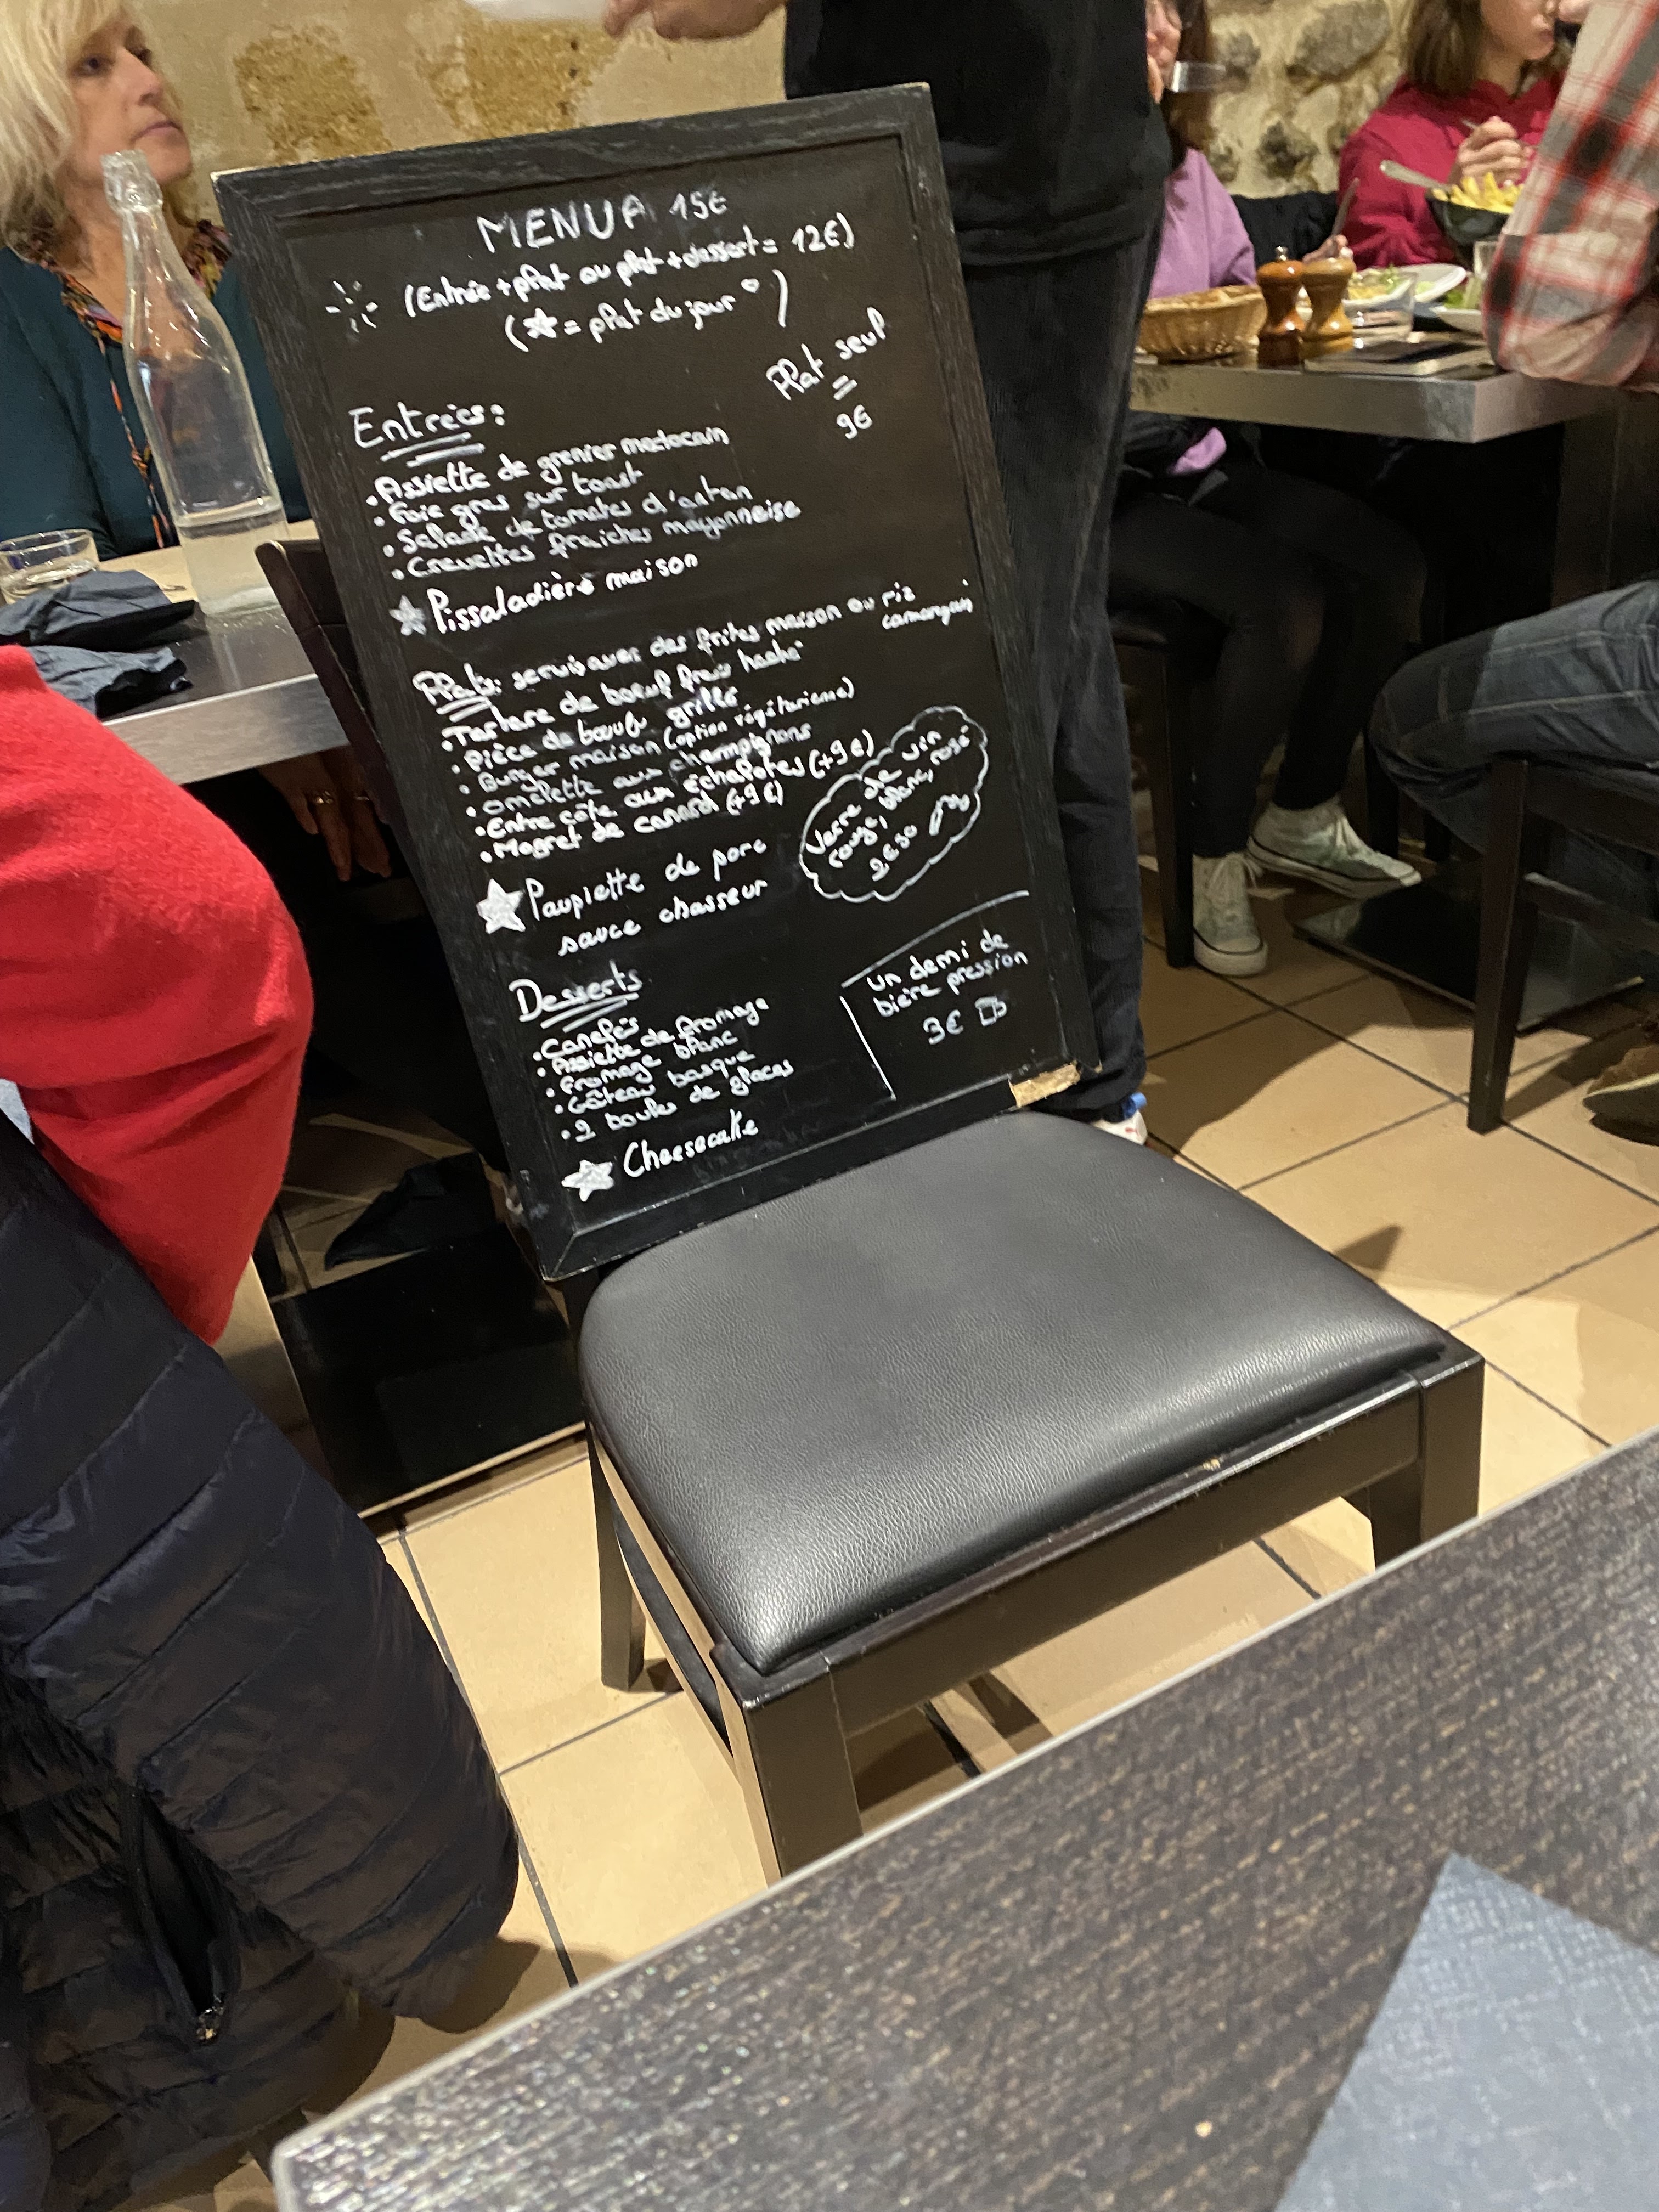 MENU A 15€
(Entrée + plat ou plat + dessert = 12€)
(☆ = plat du jour)
Plat seul
=
9€
Entrées:
• Assiette de grenier medocain
• Foie gras sur toast
• Salade de tomates d'antan
• Crevettes fraiches mayonneise
☆ Pissaladière maison
Plats: servis avec des frites maison ou riz
camarguais
• Tartare de bœuf frais haché
• Pièce de bœuf grillé
• Burger maison (option végétarienne)
• omelette aux champignons
• Entre côte aux échalotes (+9€)
• Magret de canard (+9€)
☆ Paupiette de porc
sauce chasseur
Verre de vin
rouge, blanc, rosé
2€50
Desserts
• Canelés
• Assiette de fromage
• Fromage blanc
• Gâteau basque
• 2 boules de glaces
☆ Cheesecake
un demi de
bière pression
3€